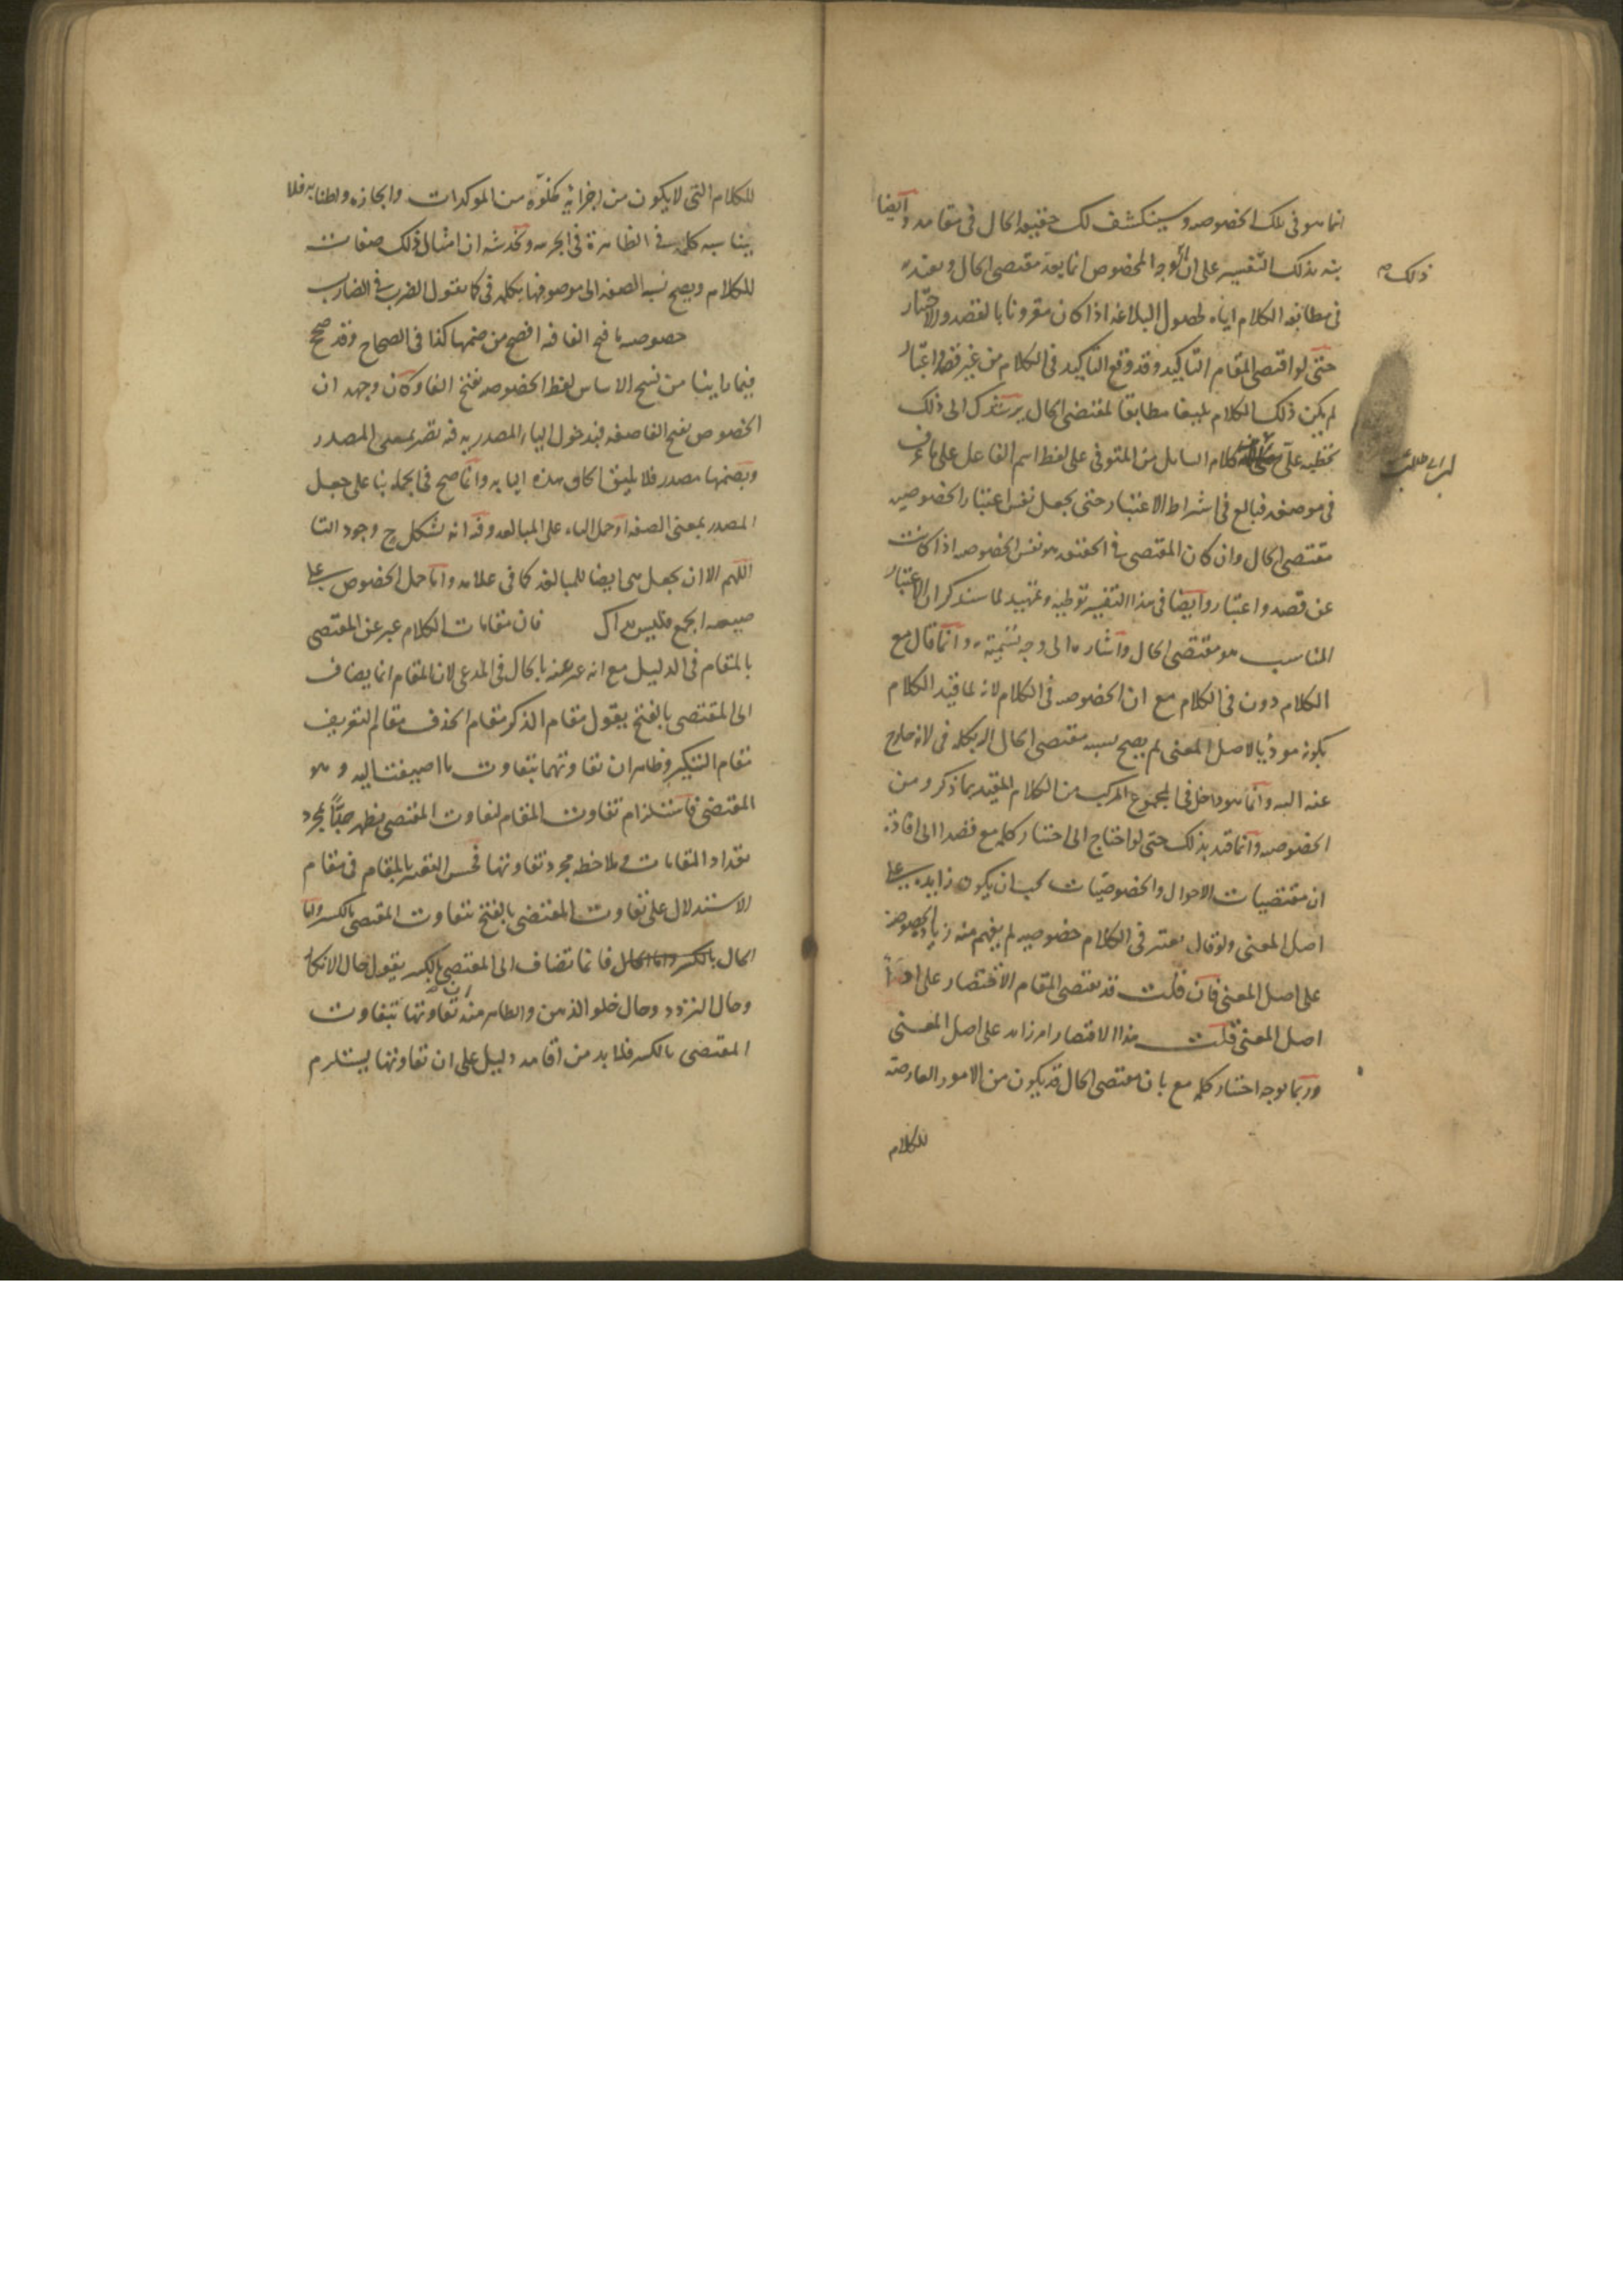 انما هو في تلك الخصوصه وسينكشف لك حقيقه الحال في مقامه وايضا
نبه بذلك التفسير على ان الوجه المخصوص انما يعد مقتضى الحال ويعتد به
ذلك صح
في مطابقه الكلام اياه لحصول البلاغه اذا كان مقرونا بالقصد والاعتبار
حتى لو اقتضى المقام التاكيد وقد وقع التاكيد في الكلام من غير قصد واعتبار
لم يكن ذلك الكلام بليغا مطابقا لمقتضى الحال يرشدك الى ذلك
تخطيه على كلام السايل من المتوفى على لفظ اسم الفاعل على ما عرف
في موضعه فبالغ في اشراط الاعتبار حتى يجعل نفس اعتبار الخصوصيه
مقتضى الحال وان كان المقتضى في الحقيقه هو نفس الخصوصه اذا كانت
عن قصد واعتبار وايضا في هذا التفسير توطيه وتمهيد لما سنذكر ان الاعتبار
المناسب هو مقتضى الحال واشاره الى وجه تسميته وانما قال مع
الكلام دون في الكلام مع ان الخصوصه في الكلام لانه لما قيد الكلام
بكونه مؤديا لاصل المعنى لم يصح نسبه مقتضى الحال اليه بكلمه في لانه خارج
عنه البته وانما هو داخل في المجموع المركب من الكلام المقيد بما ذكر ومن
الخصوصه وانما قيد بذلك حتى لو احتاج الى اختيار كلمه مع قصدا الى افاده
ان مقتضيات الاحوال والخصوصيات يجب ان يكون زايده على
اصل المعنى ولو قال يعتبر في الكلام خصوصيه لم يفهم منه زياده الخصوصه
على اصل المعنى فان قلت قد يقتضى المقام الاقتصار على
اصل المعنى قلت هذا الاقتصار امر زايد على اصل المعنى
وربما يوجه اختيار كلمه مع بان مقتضى الحال قد يكون من الامور العارضه
للكلام
للكلام التي لا يكون من اجزائه كخلوه من الموكدات وايجازه واطنابه فلا
يناسبه كلمه في الظاهرة في الجزئيه ويخدشه ان امثال ذلك صفات
للكلام ويصح نسبه الصفه الى موصوفها بكلمه في كما يقول الضرب في الضارب
خصوصه ما فتح الفا فيه افصح من ضمها كذا في الصحاح وقد صحح
فيما راينا من نسخ الاساس لفظ الخصوصه بفتح الفا وكان وجهه ان
الخصوص بفتح الفا صفه فبدخول اليا المصدريه فيه تصير بمعنى المصدر
وبضمها مصدر فلا يليق الحاق هذه اليا به وانما صح في الجمله بنا على جعل
المصدر بمعنى الصفه او حمل الياء على المبالغه وفيه انه يشكل ح وجود التا
اللهم الا ان يجعل هي ايضا للمبالغه كما في علامه واما حمل الخصوص على
صيغه الجمع فليس بذاك فان مقامات الكلام عبر عن المقتضى
بالمقام في الدليل مع انه عبر عنه بالحال في المدعى لان المقام انما يضاف
الى المقتضى بالفتح يقول مقام الذكر مقام الحذف مقام التعريف
مقام التنكير وظاهر ان تفاوتهما بتفاوت ما اضيفتا اليه وهو
المقتضى فاستلزام تفاوت المقام لتفاوت المقتضى يظهر جدا بمجرد
تعداد المقامات وملاحظه مجرد تفاوتها فحسن التعبير بالمقام في مقام
الاستدلال على تفاوت المقتضى بالفتح بتفاوت المقتضى بالكسر واما
الحال فانما تضاف الى المقتضى بالكسر يقول حال الانكار
وحال التردد وحال خلو الذهن والظاهر منه ان تفاوتها بتفاوت
المقتضى بالكسر فلا بد من اقامه دليل على ان تفاوتها يستلزم